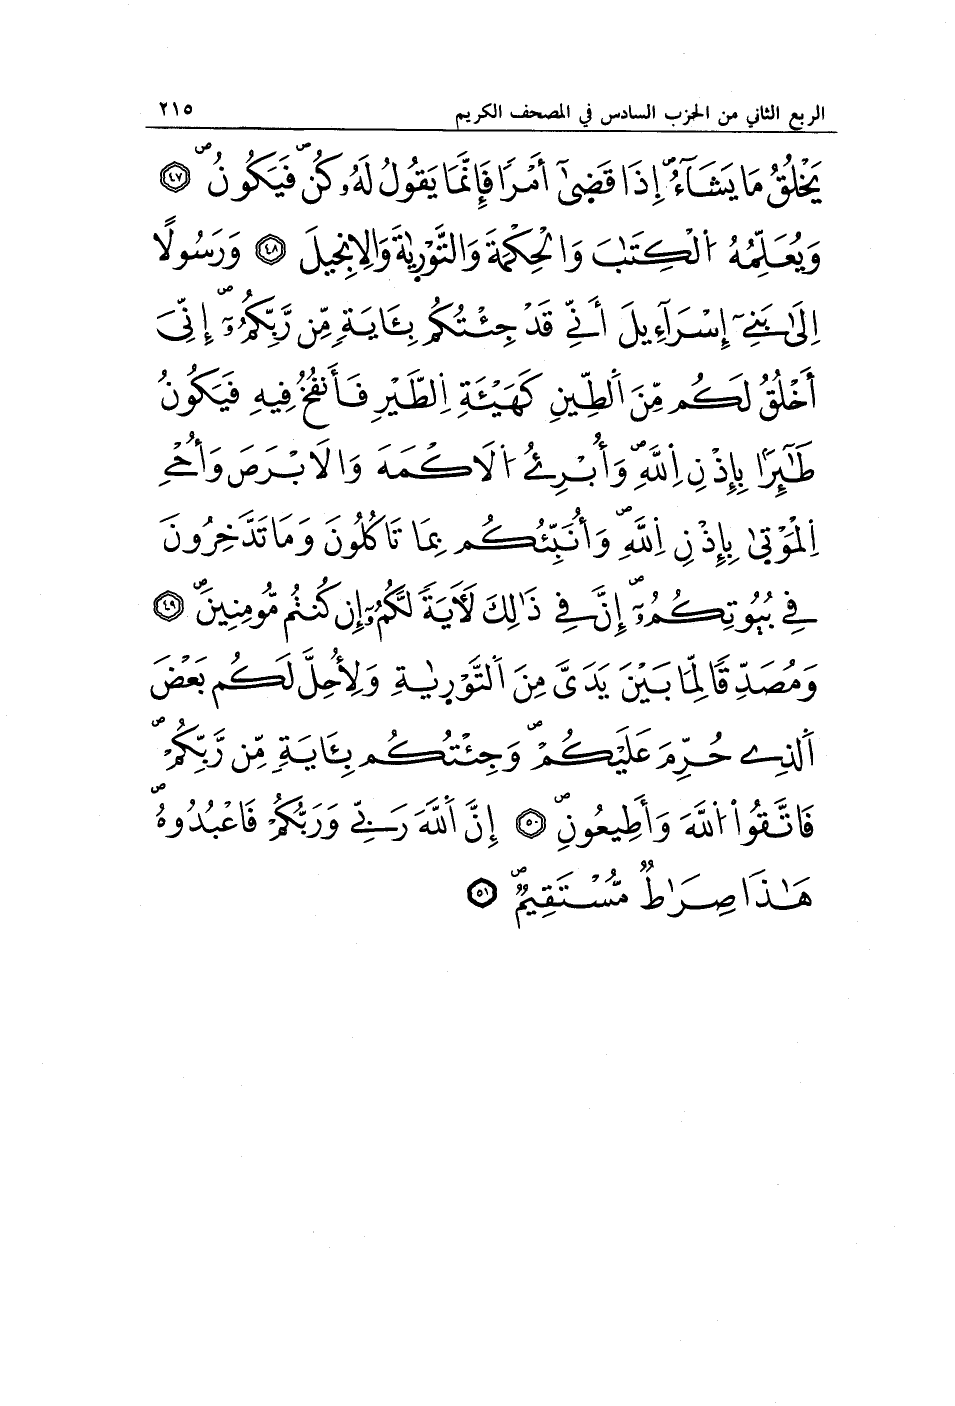 الربع الثاني من الحزب السادس في المصحف الكريم ٢١٥
يَخْلُقُ مَا يَشَآءُ ۖ إِذَا قَضَىٰٓ أَمْرًا فَإِنَّمَا يَقُولُ لَهُۥ كُن ۖ فَيَكُونُ ۖ ٤٧
وَيُعَلِّمُهُ اُ۬لْكِتَٰبَ وَالْحِكْمَةَ وَالتَّوْر۪يٰةَ وَالِانجِيلَ ٤٨ وَرَسُولًا
اِلَىٰ بَنِےٓ إِسْرَآءِيلَ أَنِّے قَدْ جِئْتُكُم بِـَٔايَةٍ مِّن رَّبِّكُمُۥٓ ۖ إِنِّىَ
أَخْلُقُ لَكُم مِّنَ اَ۬لطِّينِ كَهَيْـَٔةِ اِ۬لطَّيْرِ فَأَنفُخُ فِيهِ فَيَكُونُ
طَٰٓئِرًا بِإِذْنِ اِ۬للَّهِ ۖ وَأُبْرِئُ اُ۬لَاكْمَهَ وَالَابْرَصَ وَأُحْےِ
اِ۬لْمَوْتَىٰ بِإِذْنِ اِ۬للَّهِ ۖ وَأُنَبِّئُكُم بِمَا تَاكُلُونَ وَمَا تَدَّخِرُونَ
فِے بُيُوتِكُمُۥٓ ۖ إِنَّ فِے ذَٰلِكَ لَأٓيَةً لَّكُمُۥٓ إِن كُنتُم مُّومِنِينَ ۖ ٤٩
وَمُصَدِّقًا لِّمَا بَيْنَ يَدَىَّ مِنَ اَ۬لتَّوْر۪يٰةِ وَلِأُحِلَّ لَكُم بَعْضَ
اَ۬لذِے حُرِّمَ عَلَيْكُمْ ۖ وَجِئْتُكُم بِـَٔايَةٍ مِّن رَّبِّكُمْ ۖ
فَاتَّقُواْ اُ۬للَّهَ وَأَطِيعُونِ ۖ ٥٠ إِنَّ اَ۬للَّهَ رَبِّے وَرَبُّكُمْ فَاعْبُدُوهُ ۖ
هَٰذَا صِرَٰطٌ مُّسْتَقِيمٌ ۖ ٥١